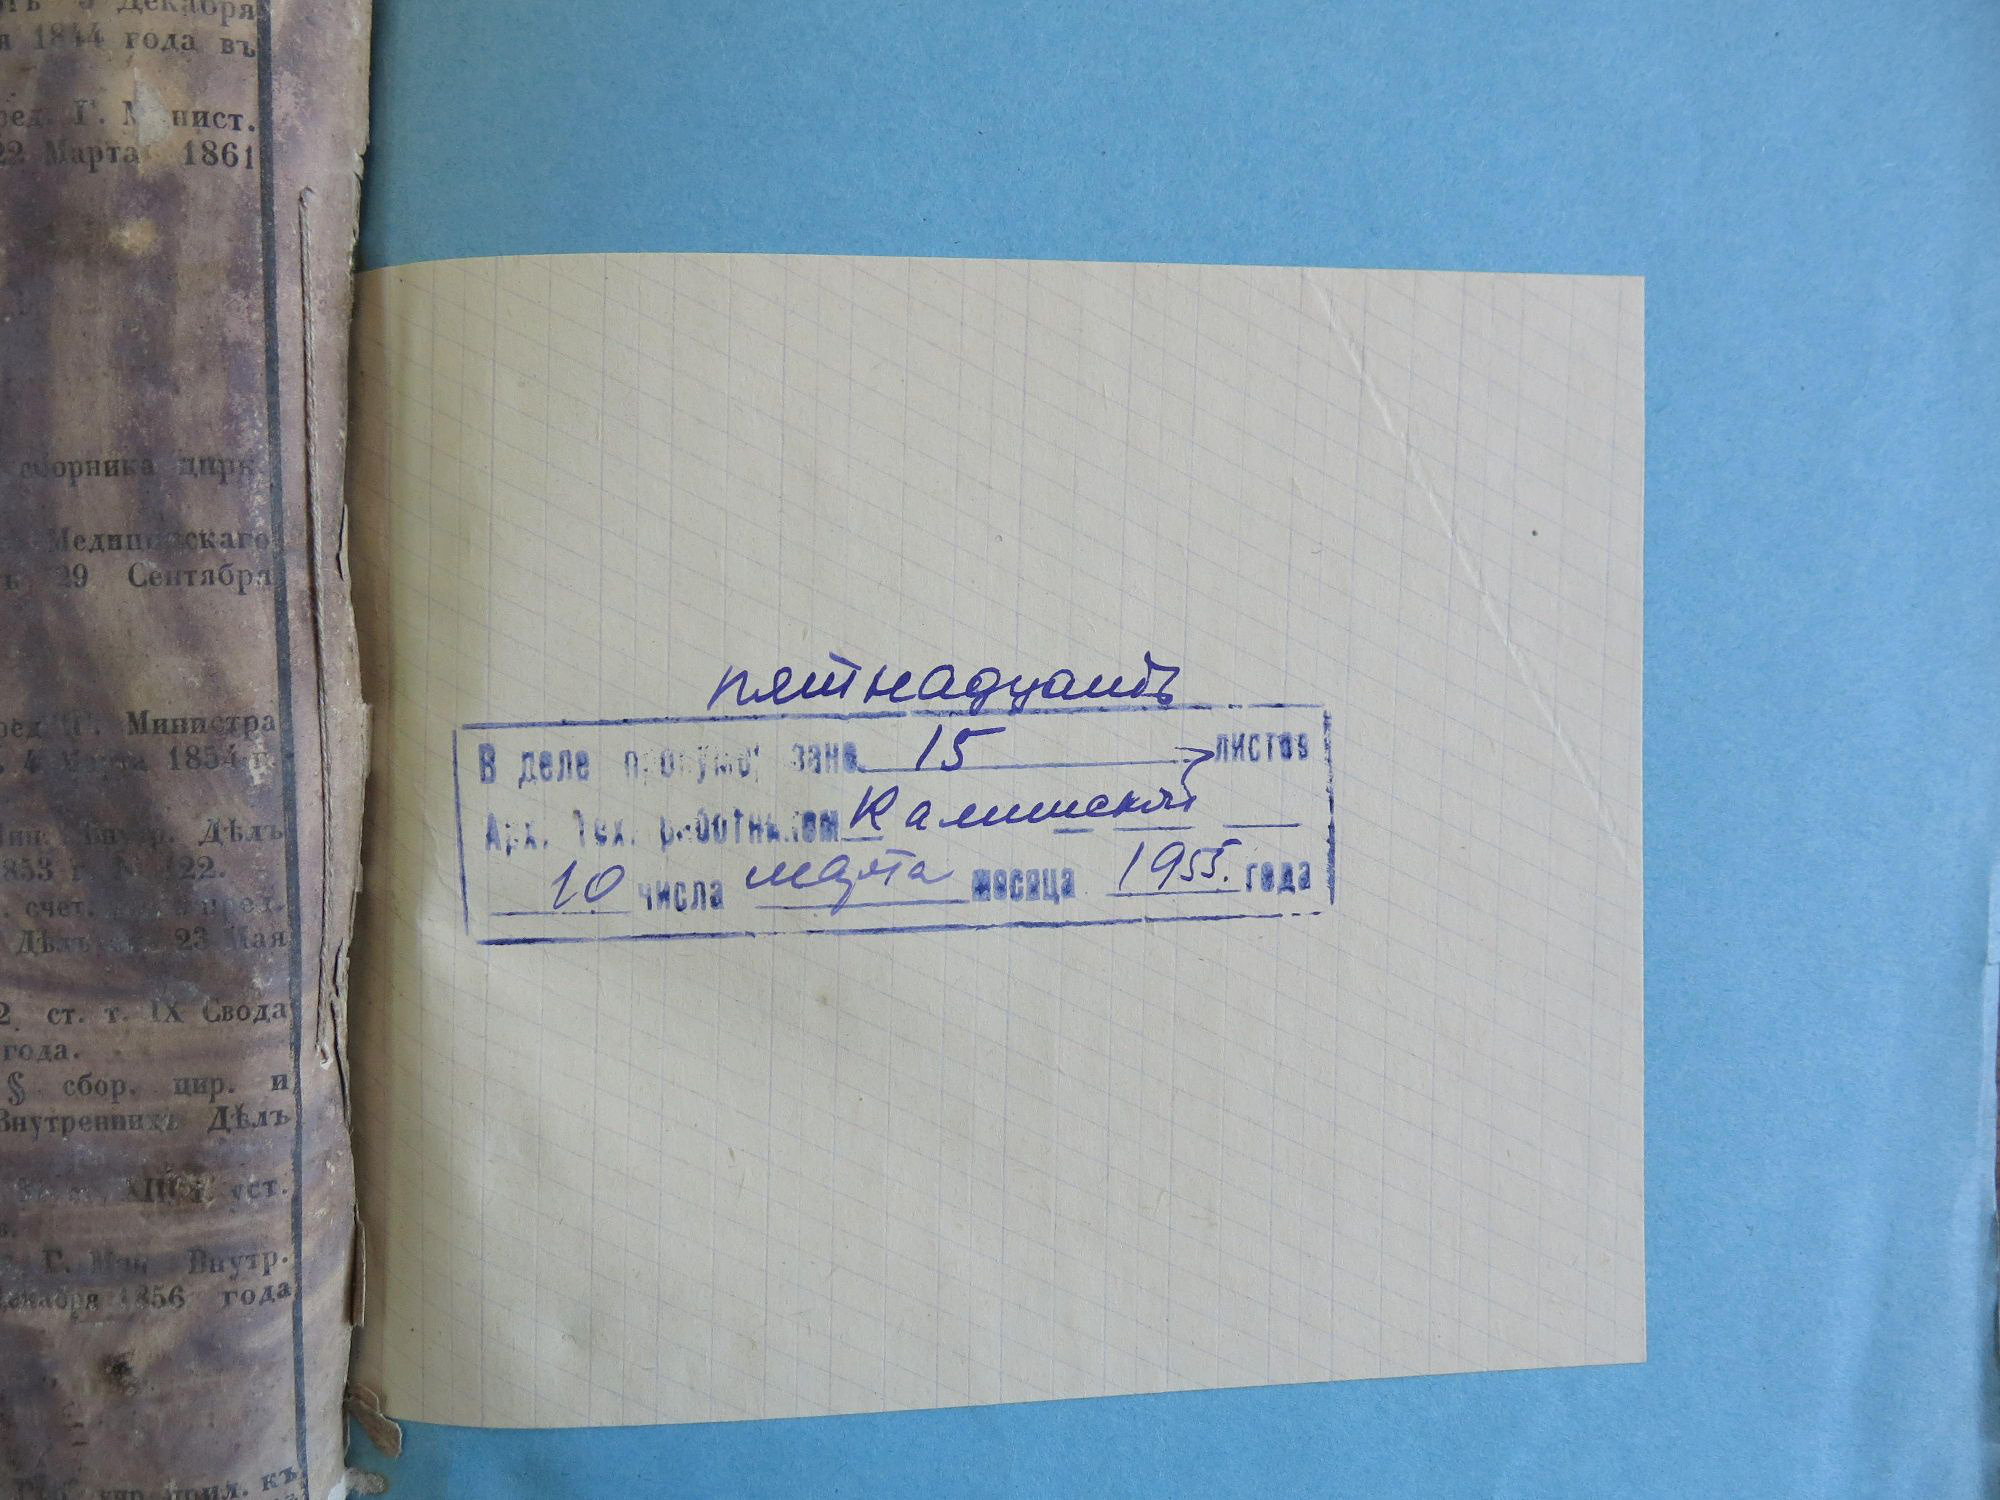 5 Декабря
1844 года въ
ред. Г. Минист.
22 Марта 1861
сборника цирк.
Медицинскаго
29 Сентября
Г. Министра
4 Марта 1854 г.
Мин. Внутр. Дѣлъ
1853 г. № 122.
счет.
Дѣлъ 23 Мая
2 ст. т. IX Свода
года.
§ сбор. цир. и
Внутреннихъ Дѣлъ
XIII т. уст.
Г. Мин. Внутр.
Декабря 1856 года
прил. къ
пятнадцать
В деле пронумеровано 15 листов
Арх. тех. работником
10 числа марта месяца 1955. года